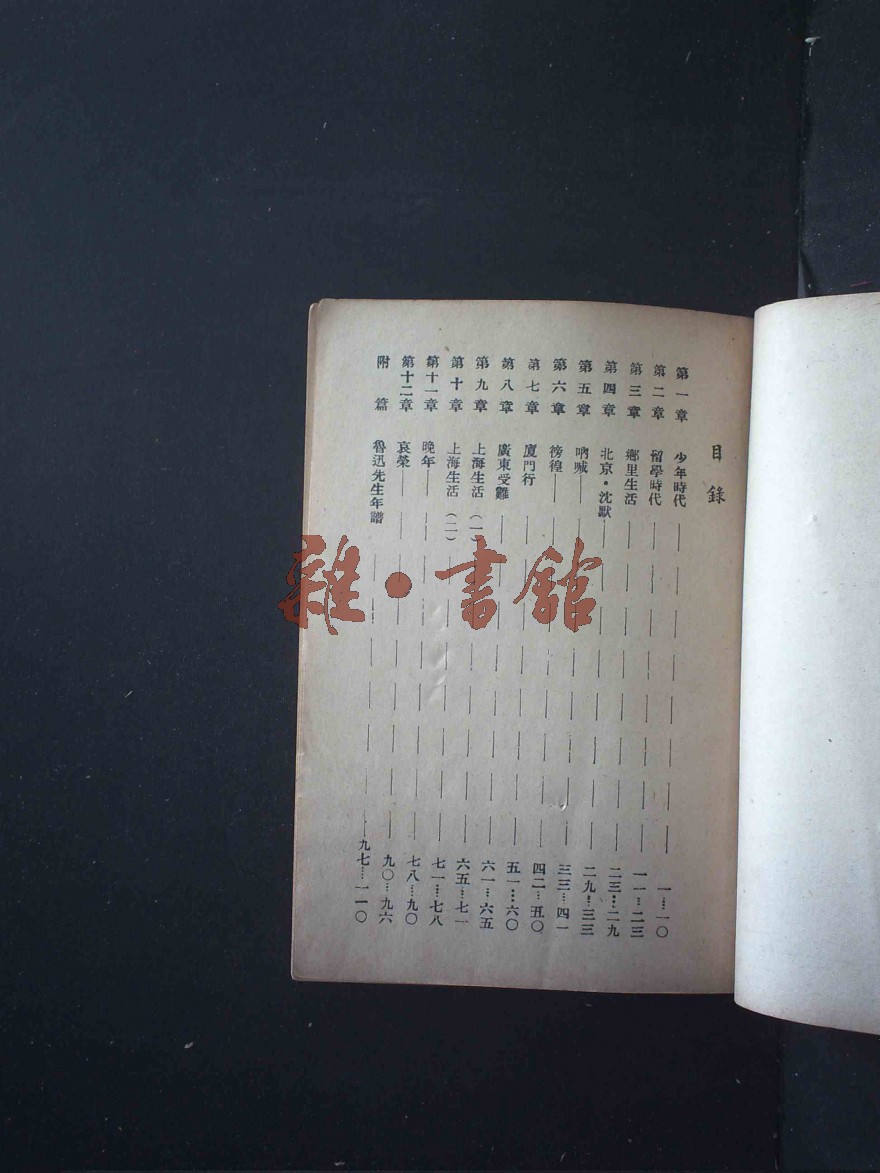 目錄
第一章 少年時代 一…一〇
第二章 留學時代 一一…二三
第三章 鄉里生活 二三…二九
第四章 北京·沈默 二九…三三
第五章 吶喊 三三…四一
第六章 徬徨 四二…五〇
第七章 廈門行 五一…六〇
第八章 廣東受難 六一…六五
第九章 上海生活（一） 六五…七一
第十章 上海生活（二） 七一…七八
第十一章 晚年 七八…九〇
第十二章 哀榮 九〇…九六
附篇 魯迅先生年譜 九七…一一〇
雜·書館